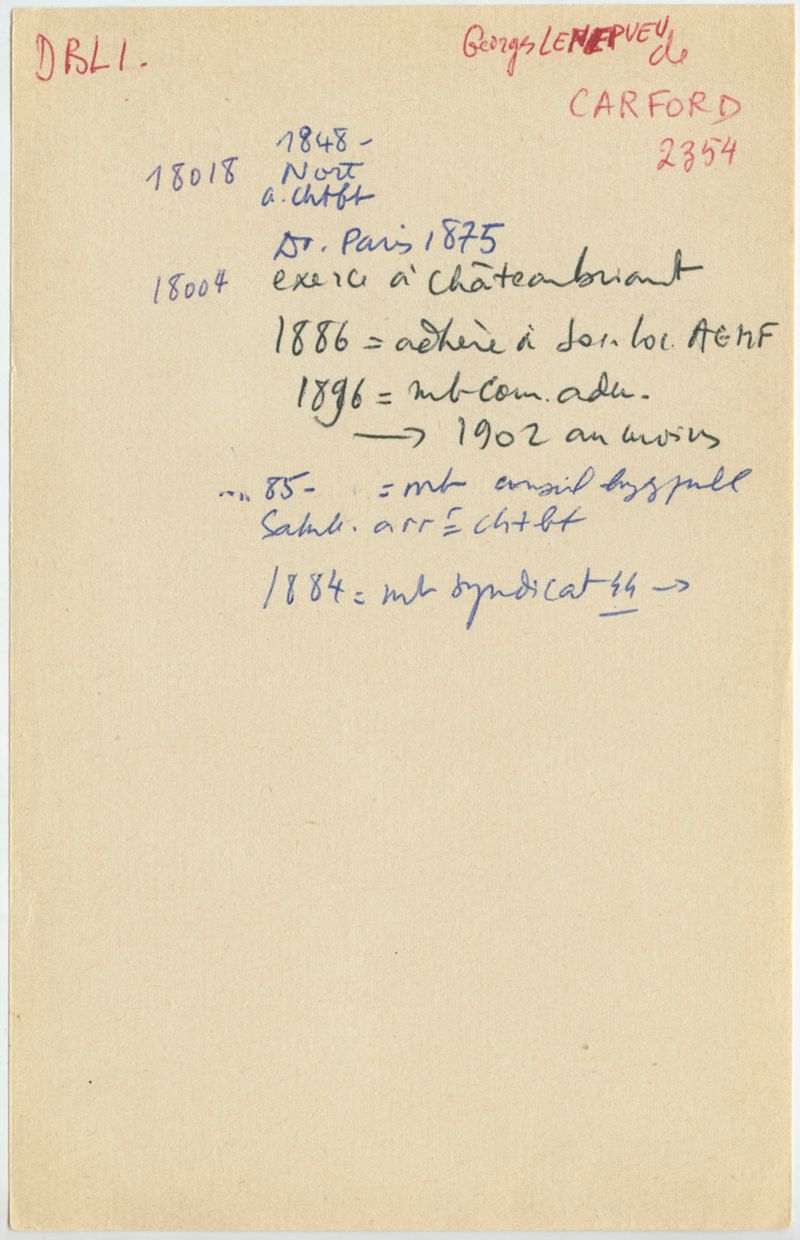 DBL1.
Georges LENEPVEU de
CARFORD
2354
1848-
18018 Nort
a. chtbt
Dr. Paris 1875
18004 exerce à Châteaubriant
1886 = adhère à Soc. loc. AGMF
1896 = mb com. adm.
→ 1902 au moins
.... 85- = mb conseil hyg publ
Salub. arr = chtbt
1884 = mb syndicat 44 →